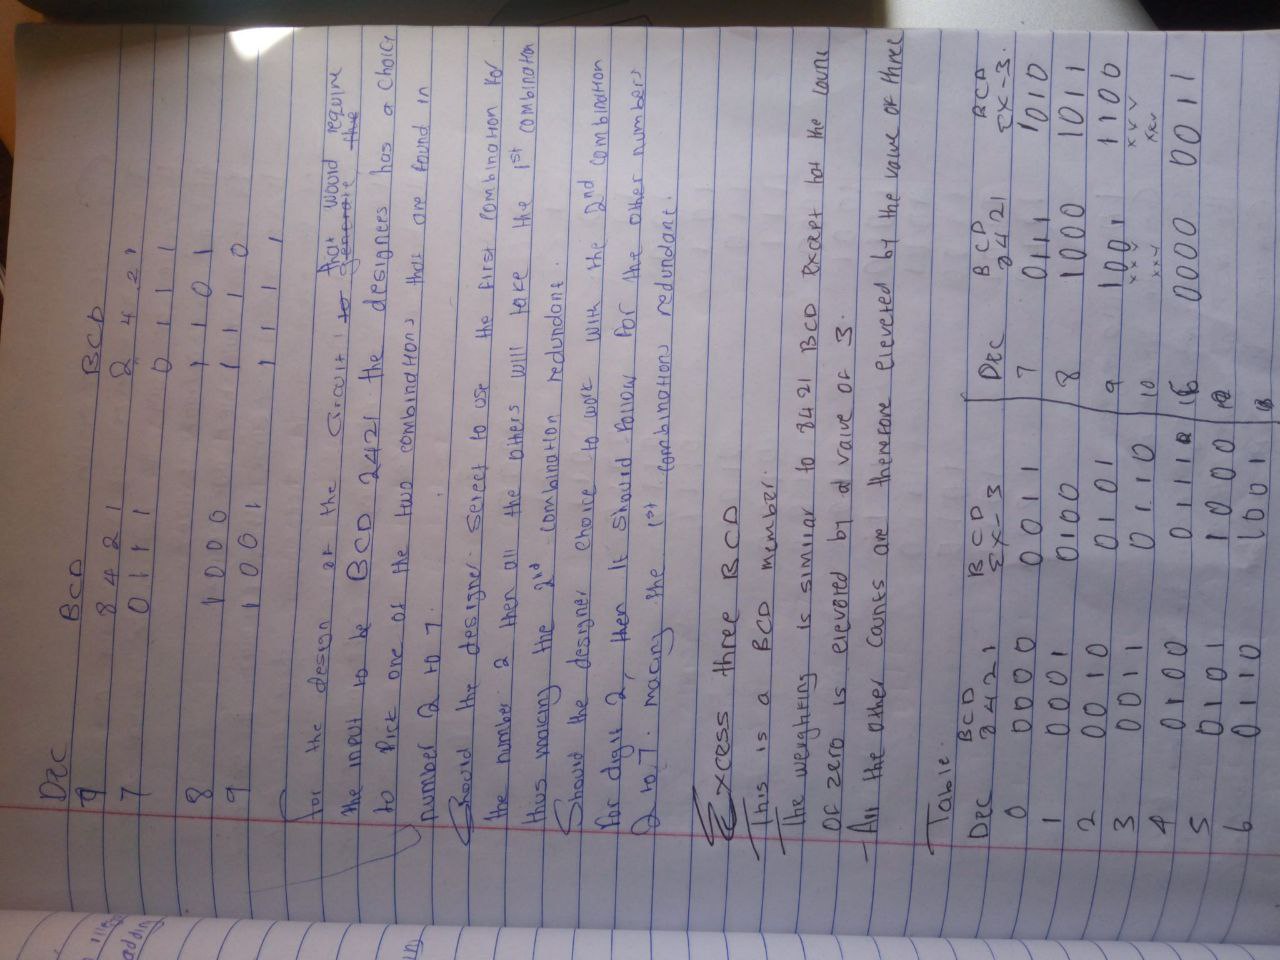 Dec BCD BCD
9 8 4 2 1 2 4 2 1
7 0 1 1 1 0 1 1 1
1 1 0 1
8 1 0 0 0 1 1 1 0
9 1 0 0 1 1 1 1 1
For the design of the circuit to generate, the that would require
the input to be BCD 2421 the designees has a choice
to pick one of the two combinations that are found in
number 2 to 7.
Should the designer select to use the first combination for
the number 2 then all the others will take the 1st combination
thus making the 2nd combination redundant.
Should the designer choice to work with the 2nd combination
for digit 2, then it should follow for the other numbers
2 to 7. macing the 1st combinations redundant.
Excess three BCD
- This is a BCD member.
- The weighting is similar to 8421 BCD except hat the count
of zero is elevated by a value of 3.
- All the other counts are therefore eleveted by the value of three
Table.
Dec BCD 8421 BCD EX-3 Dec BCD 8421 BCD EX-3.
0 0000 0011 7 0111 1010
1 0001 0100 8 1000 1011
2 0010 0101 9 1001 1100
3 0011 0110 10
4 0100 0111 16 0000 0011
5 0101 1000
6 0110 1001
adding